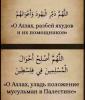 اللَّهُمَّ دَمِّرِ الْيَهُودَ وَأَعْوَانَهُمْ
«О Аллах, разбей яхудов
и их помощников»
اللَّهُمَّ أَصْلِحْ أَحْوَالَ
الْمُسْلِمِينَ فِي فِلَسْطِينَ
«О Аллах, уладь положение
мусульман в Палестине»